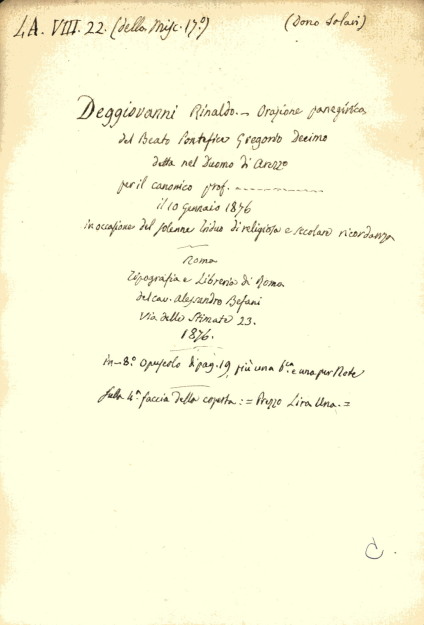 LA. VIII. 22. (della Misc. 17.º)
(Dono Solari)
Deggiovanni Rinaldo. – Orazione panegirica
del Beato Pontefice Gregorio Decimo
detta nel Duomo di Arezzo
per il canonico prof. ----------
il 10 Gennaio 1876
in occasione del solenne triduo di religiosa e secolare ricordanza
Roma
Tipografia e Libreria di Roma
del cav. Alessandro Befani
Via delle Stimate 23.
1876.
in-8.º opuscolo di pag. 19, più una b.ca e una per Note
Sulla 4.ª faccia della coperta: = Prezzo Lira Una. =
C.